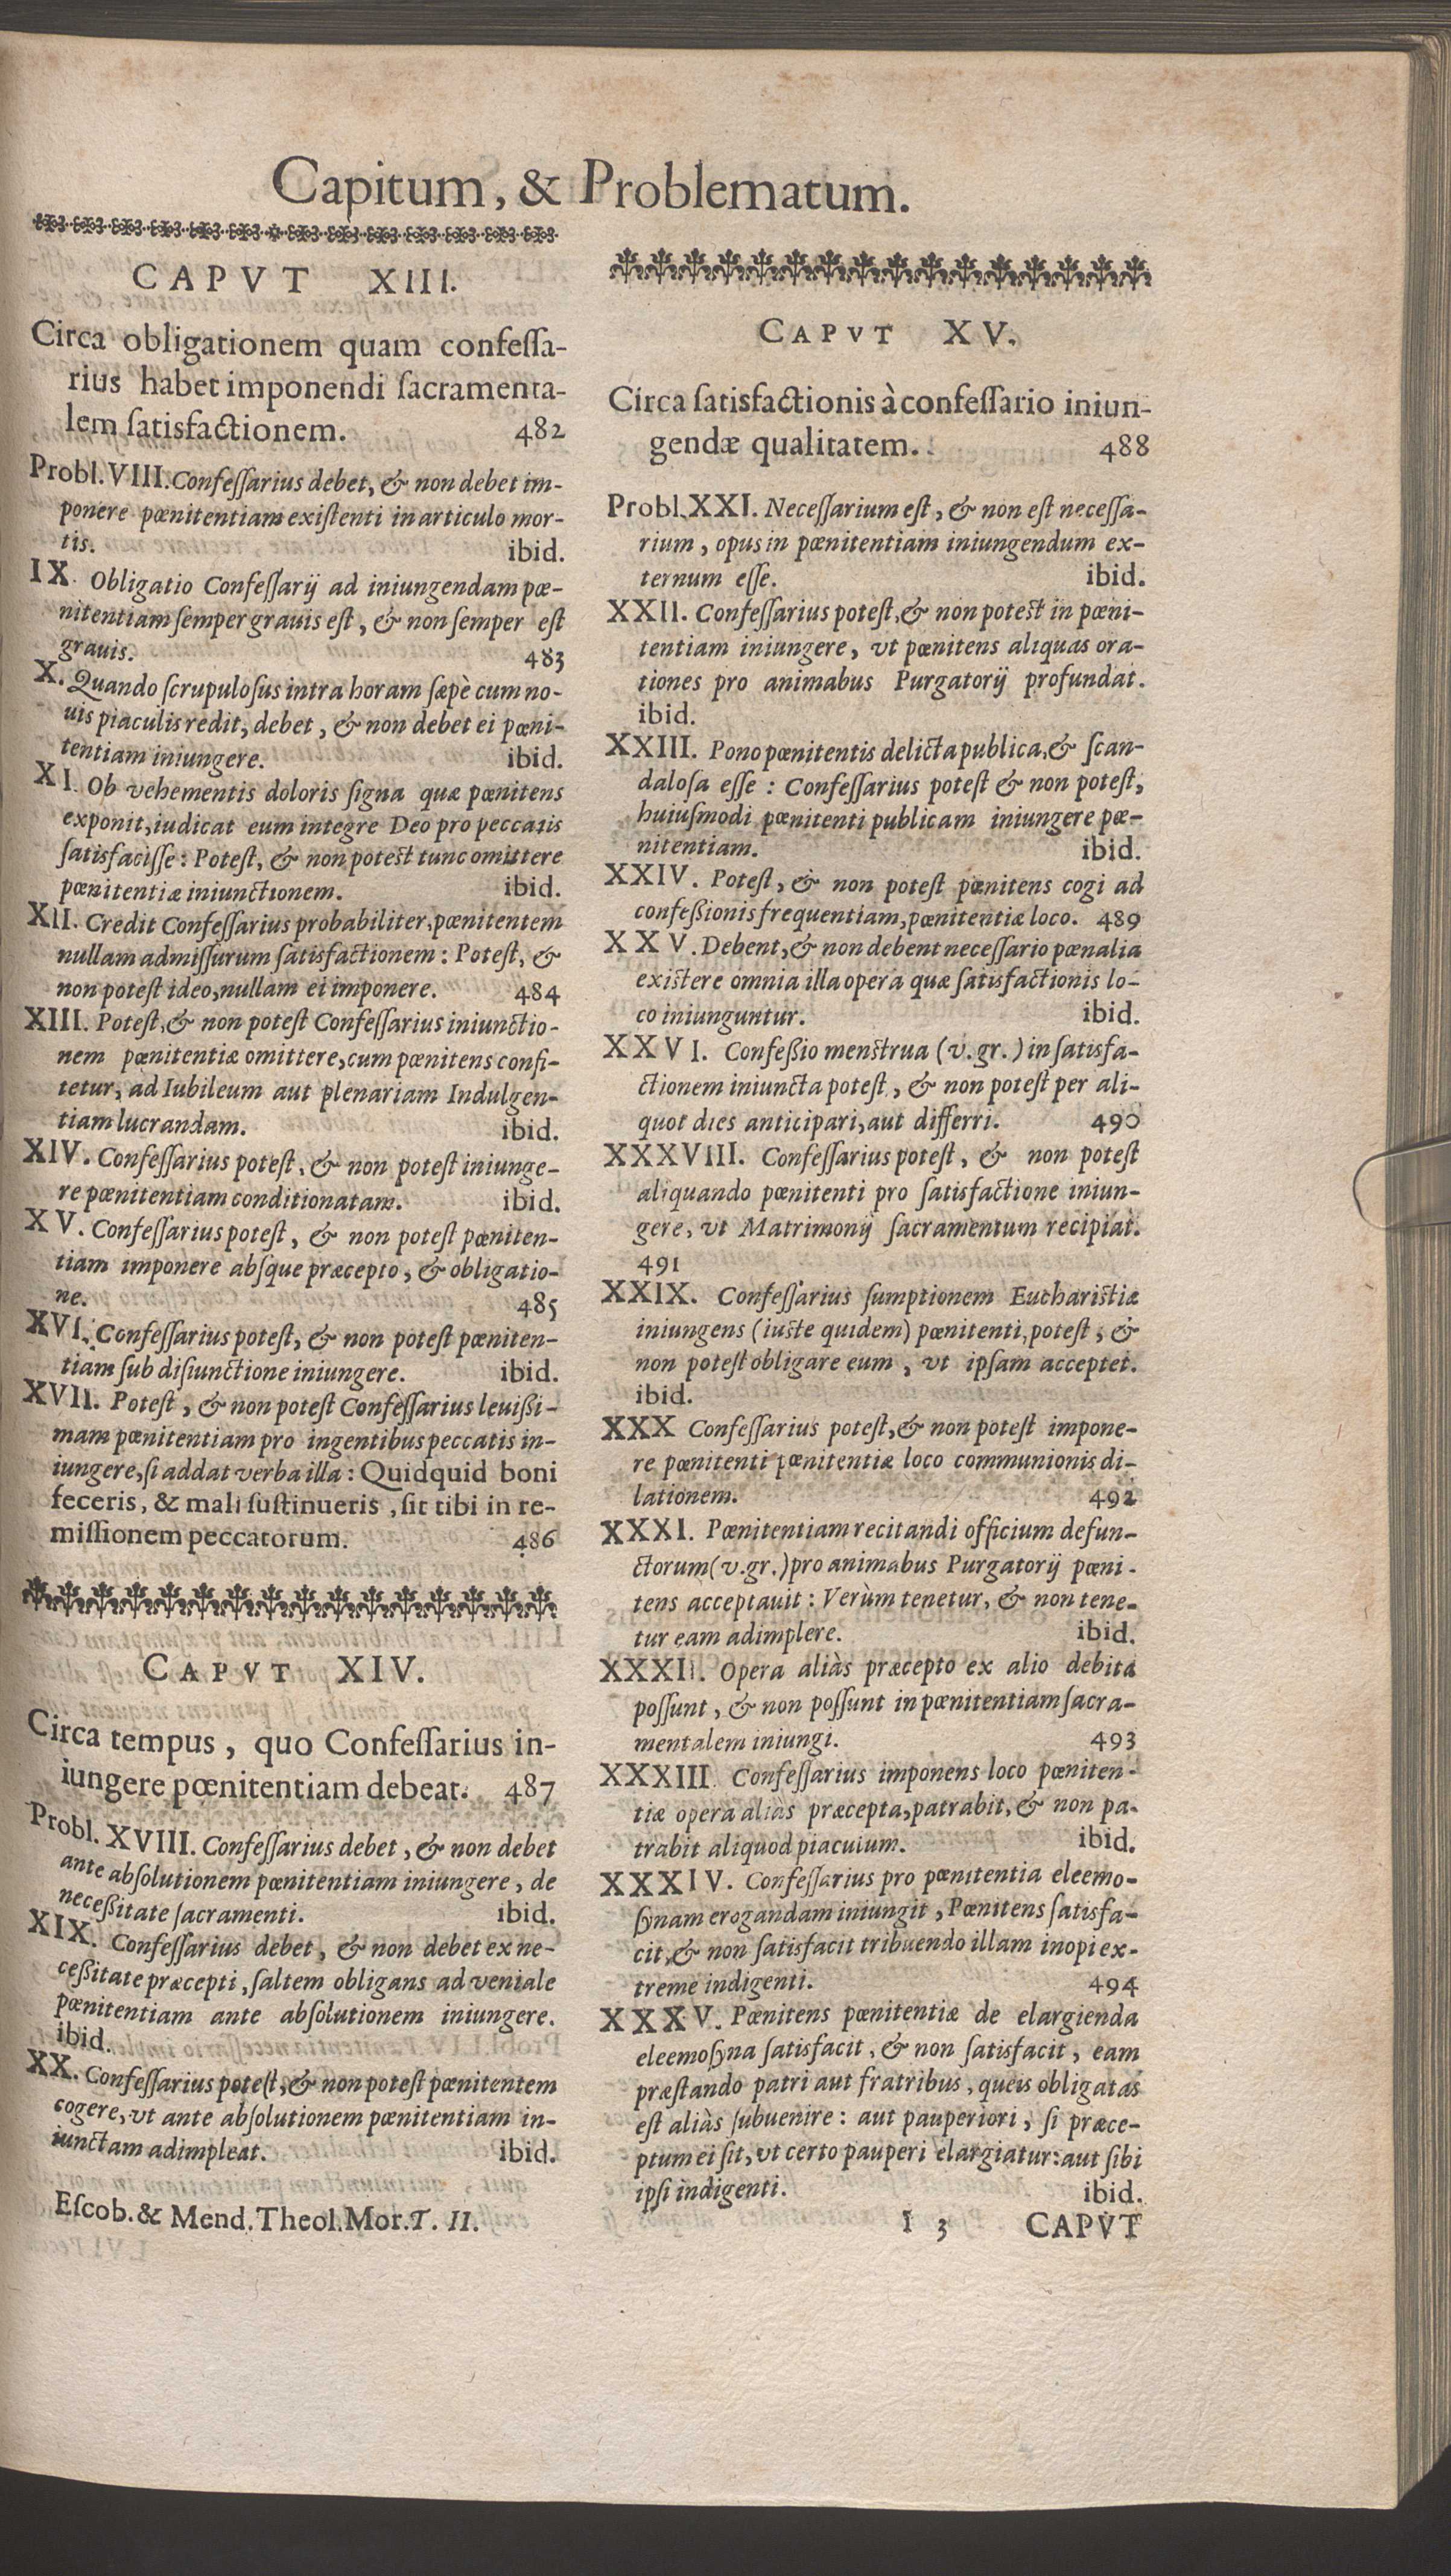 Capitum, & Problematum.
CAPVT XIII.
Circa obligationem quam confeſſa-
rius habet imponendi ſacramenta-
lem ſatisfactionem. 482
Probl. VIII. Confeſſarius debet, & non debet im-
ponere pœnitentiam exiſtenti in articulo mor-
tis. ibid.
IX. Obligatio Confeſſarij ad iniungendam pœ-
nitentiam ſemper grauis eſt, & non ſemper eſt
grauis. 483
X. Quando ſcrupuloſus intra horam ſæpè cum no-
uis piaculis redit, debet, & non debet ei pœni-
tentiam iniungere. ibid.
XI. Ob vehementis doloris ſigna quæ pœnitens
exponit, iudicat eum integre Deo pro peccatis
ſatisfaciſſe: Poteſt, & non poteſt tunc omittere
pœnitentiæ iniunctionem. ibid.
XII. Credit Confeſſarius probabiliter, pœnitentem
nullam admiſſurum ſatisfactionem: Poteſt, &
non poteſt ideo, nullam ei imponere. 484
XIII. Poteſt, & non poteſt Confeſſarius iniunctio-
nem pœnitentiæ omittere, cum pœnitens confi-
tetur, ad Iubileum aut plenariam Indulgen-
tiam lucrandam. ibid.
XIV. Confeſſarius poteſt, & non poteſt iniunge-
re pœnitentiam conditionatam. ibid.
XV. Confeſſarius poteſt, & non poteſt pœniten-
tiam imponere abſque præcepto, & obligatio-
ne. 485
XVI. Confeſſarius poteſt, & non poteſt pœniten-
tiam ſub diſiunctione iniungere. ibid.
XVII. Poteſt, & non poteſt Confeſſarius leuißi-
mam pœnitentiam pro ingentibus peccatis in-
iungere, ſi addat verba illa: Quidquid boni
feceris, & mali ſuſtinueris, ſit tibi in re-
miſſionem peccatorum. 486
CAPVT XIV.
Circa tempus, quo Confeſſarius in-
iungere pœnitentiam debeat. 487
Probl. XVIII. Confeſſarius debet, & non debet
ante abſolutionem pœnitentiam iniungere, de
neceßitate ſacramenti. ibid.
XIX. Confeſſarius debet, & non debet ex ne-
ceßitate præcepti, ſaltem obligans ad veniale
pœnitentiam ante abſolutionem iniungere.
ibid.
XX. Confeſſarius poteſt, & non poteſt pœnitentem
cogere, vt ante abſolutionem pœnitentiam in-
iunctam adimpleat. ibid.
Eſcob. & Mend. Theol. Mor. T. II.
CAPVT XV.
Circa ſatisfactionis à confeſſario iniun-
gendæ qualitatem. 488
Probl. XXI. Neceſſarium eſt, & non eſt neceſſa-
rium, opus in pœnitentiam iniungendum ex-
ternum eſſe. ibid.
XXII. Confeſſarius poteſt, & non poteſt in pœni-
tentiam iniungere, vt pœnitens aliquas ora-
tiones pro animabus Purgatorij profundat.
ibid.
XXIII. Pono pœnitentis delicta publica, & ſcan-
daloſa eſſe: Confeſſarius poteſt & non poteſt,
huiuſmodi pœnitenti publicam iniungere pœ-
nitentiam. ibid.
XXIV. Poteſt, & non poteſt pœnitens cogi ad
confeßionis frequentiam, pœnitentiæ loco. 489
XXV. Debent, & non debent neceſſario pœnalia
exiſtere omnia illa opera quæ ſatisfactionis lo-
co iniunguntur. ibid.
XXVI. Confeßio menſtrua (v. gr.) in ſatisfa-
ctionem iniuncta poteſt, & non poteſt per ali-
quot dies anticipari, aut differri. 490
XXXVIII. Confeſſarius poteſt, & non poteſt
aliquando pœnitenti pro ſatisfactione iniun-
gere, vt Matrimonij ſacramentum recipiat.
491
XXIX. Confeſſarius ſumptionem Euchariſtiæ
iniungens (iuſte quidem) pœnitenti, poteſt, &
non poteſt obligare eum, vt ipſam acceptet.
ibid.
XXX Confeſſarius poteſt, & non poteſt impone-
re pœnitenti pœnitentiæ loco communionis di-
lationem. 492
XXXI. Pœnitentiam recitandi officium defun-
ctorum (v. gr.) pro animabus Purgatorij pœni-
tens acceptauit: Verùm tenetur, & non tene-
tur eam adimplere. ibid.
XXXII. Opera aliàs præcepto ex alio debita
poſſunt, & non poſſunt in pœnitentiam ſacra-
mentalem iniungi. 493
XXXIII. Confeſſarius imponens loco pœniten-
tiæ opera aliàs præcepta, patrabit, & non pa-
trabit aliquod piaculum. ibid.
XXXIV. Confeſſarius pro pœnitentia eleemo-
ſynam erogandam iniungit, Pœnitens ſatisfa-
cit, & non ſatisfacit tribuendo illam inopi ex-
treme indigenti. 494
XXXV. Pœnitens pœnitentiæ de elargienda
eleemoſyna ſatisfacit, & non ſatisfacit, eam
præſtando patri aut fratribus, queis obligatas
eſt aliàs ſubuenire: aut pauperiori, ſi præce-
ptum ei ſit, vt certo pauperi elargiatur: aut ſibi
ipſi indigenti. ibid.
I 3 CAPVT